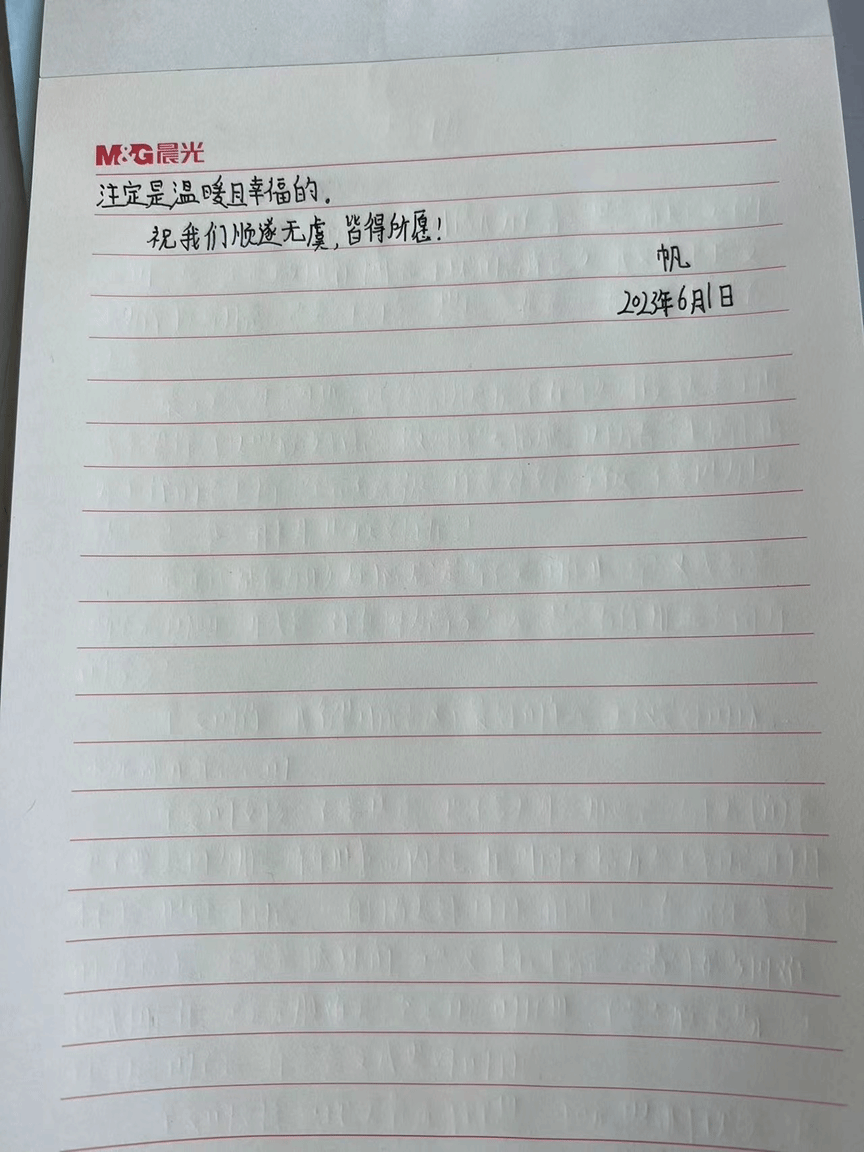 M&G晨光
注定是温暖且幸福的.
祝我们顺遂无虞,皆得所愿!
帆
2023年6月1日